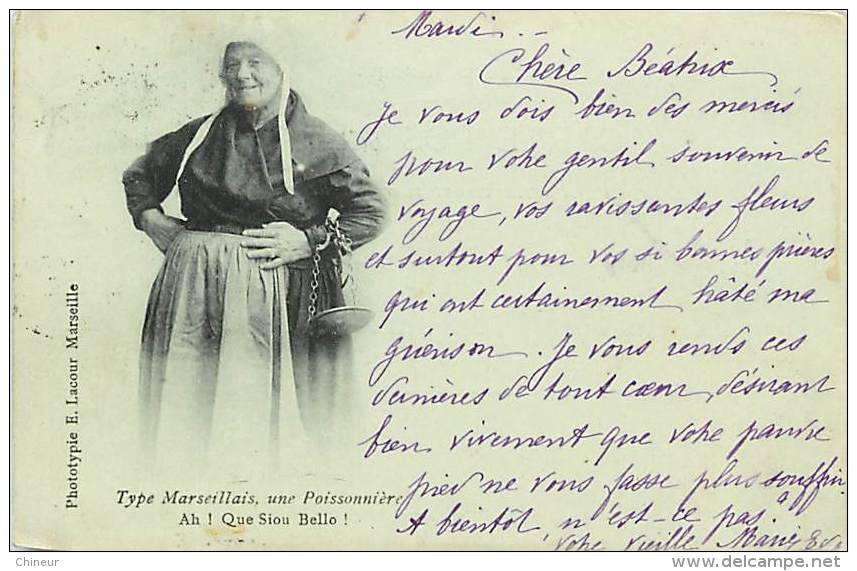 Mardi. --
Chère Béatrix
Je vous dois bien des mercis
pour votre gentil souvenir de
voyage, vos ravissantes fleurs
et surtout pour vos si bonnes prières
qui ont certainement hâté ma
guérison. Je vous rends ces
dernières de tout cœur, désirant
bien vivement que votre pauvre
pied ne vous fasse plus souffrir.
A bientôt, n'est-ce pas?
Votre vieille Marie
Phototypie E. Lacour Marseille
Type Marseillais, une Poissonnière
Ah ! Que Siou Bello !
Chineur
www.delcampe.net